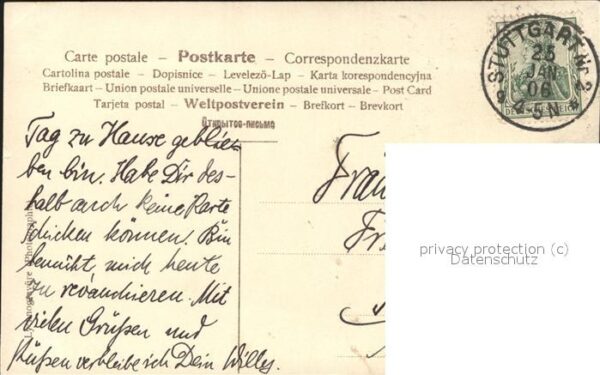 Carte postale – Postkarte – Correspondenzkarte
Cartolina postale – Dopisnice – Levelező-Lap – Karta korespondencyjna
Briefkaart – Union postale universelle – Unione postale universale – Post Card
Tarjeta postal – Weltpostverein – Brefkort – Brevkort
Открытое-письмо
STUTTGART Nr. 2
25
JAN
06
4-5N
Tag zu Hause geblie-
ben bin. Habe Dir des-
halb auch keine Karte
schicken können. Bin
bemüht, mich heute
zu revanchieren. Mit
vielen Grüßen und
Küßen verbleibe ich Dein Willy.
privacy protection (c)
Datenschutz